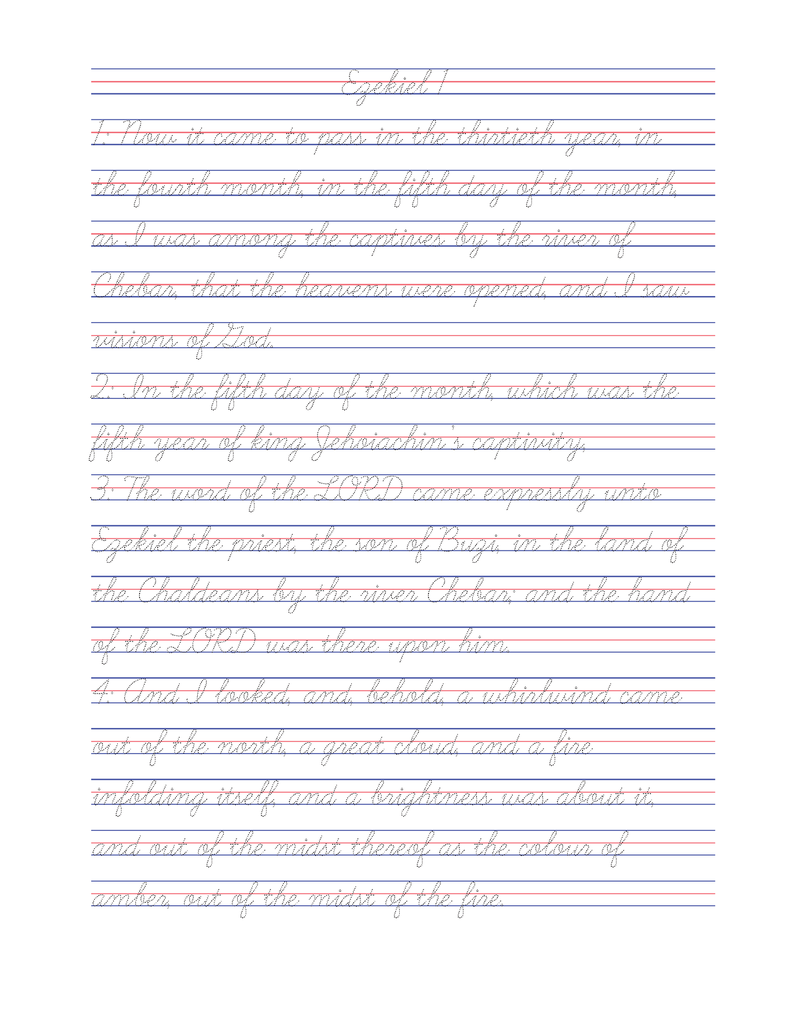 Ezekiel 1
1: Now it came to pass in the thirtieth year, in
the fourth month, in the fifth day of the month,
as I was among the captives by the river of
Chebar, that the heavens were opened, and I saw
visions of God.
2: In the fifth day of the month, which was the
fifth year of king Jehoiachin's captivity,
3: The word of the LORD came expressly unto
Ezekiel the priest, the son of Buzi, in the land of
the Chaldeans by the river Chebar; and the hand
of the LORD was there upon him.
4: And I looked, and, behold, a whirlwind came
out of the north, a great cloud, and a fire
infolding itself, and a brightness was about it,
and out of the midst thereof as the colour of
amber, out of the midst of the fire.